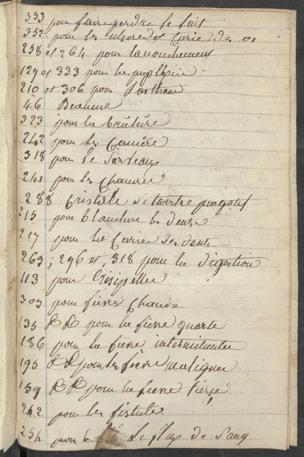 353 pour faire perdre le lait
352 pour les ulceres et Carie des os
258 et 264 pour lacouchement
129 et 333 pour
210 et 306 pour
46 Beaume
323 pour la Brûlure
242 pour les
318 pour le
241 pour les Chancres
288 Cristale de tartre purgatif
215 pour Blanchire les dents
217 pour la Carie des dents
263 ; 296 et , 318 pour la digestion
113 pour Erisipelles
303 pour fievre Chaude
135 pour la fievre quarte
186 pour la fievre intermitente
195 pour les fievre malignes
159 pour la fievre tierce
242 pour les fistules
254 pour le flux de Sang